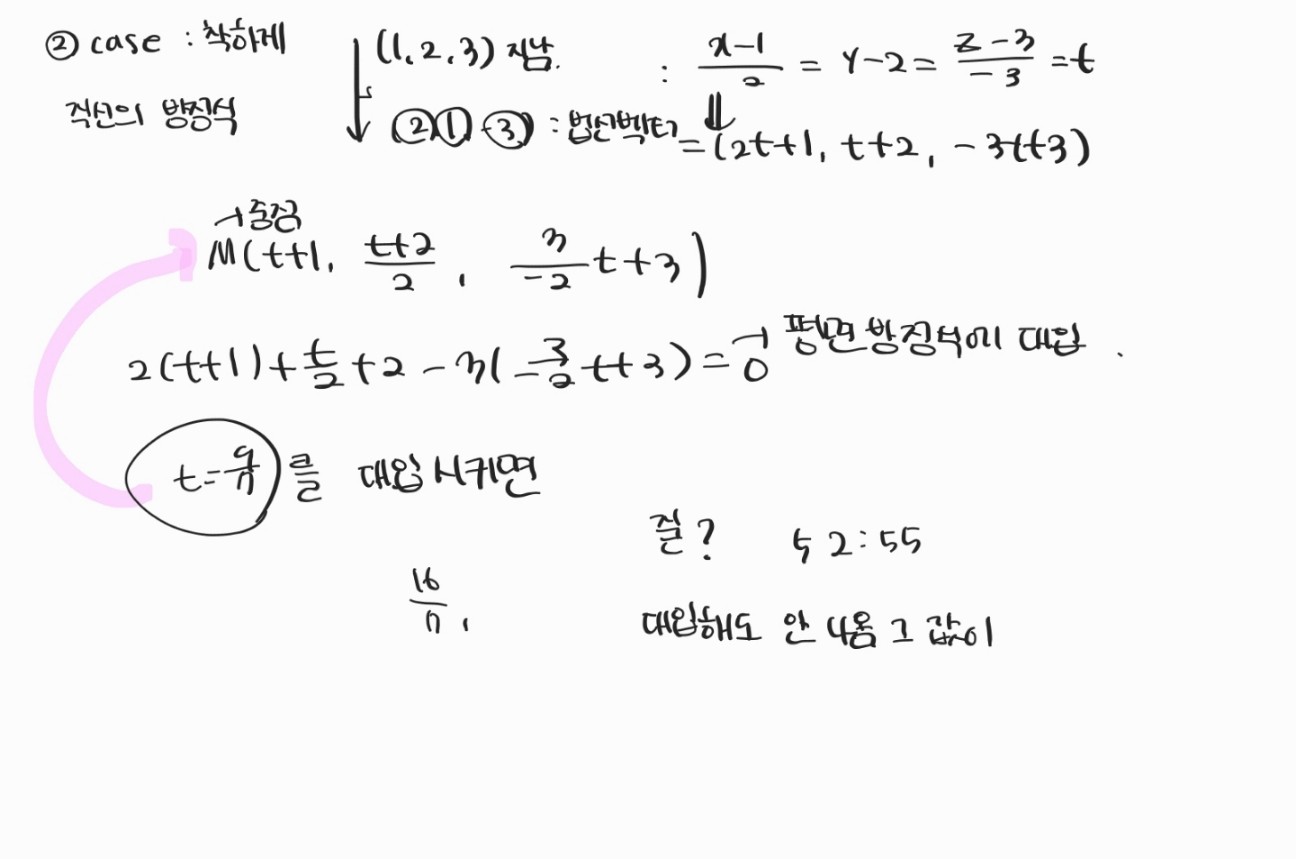 ② case :착하게
직선의 방정식
(1, 2, 3) 지남.
(② ① -③) : 법선벡터
: \frac{x-1}{2} = y-2 = \frac{z-3}{-3} = t
⇓
= (2t+1, t+2, -3t+3)
→중점
M(t+1, \frac{t+2}{2}, \frac{3}{-2}t+3)
2(t+1)+\frac{t}{2}+2-3(-\frac{3}{2}t+3)=0 → 평면방정식에 대입.
t=\frac{9}{7} 를 대입시키면
질? ↳ 2:55
\frac{16}{7},
대입해도 안 나옴 그 값이